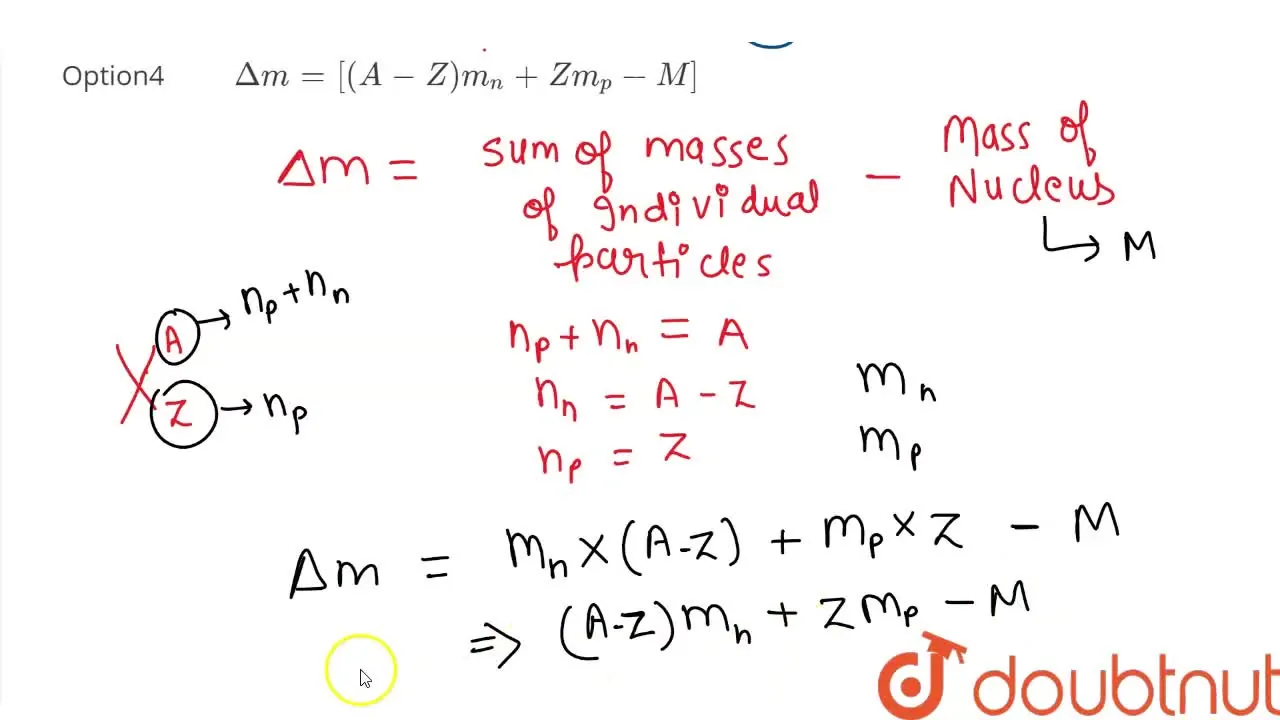 Option4 Δm = [(A − Z)mₙ + Zmₚ − M]
Δm = sum of masses of individual particles − Mass of Nucleus
→ M
A → nₚ + nₙ
X
Z → nₚ
nₚ + nₙ = A
nₙ = A - Z
nₚ = Z
mₙ
mₚ
Δm = mₙ × (A-Z) + mₚ × Z − M
⇒ (A-Z)mₙ + Zmₚ − M
doubtnut